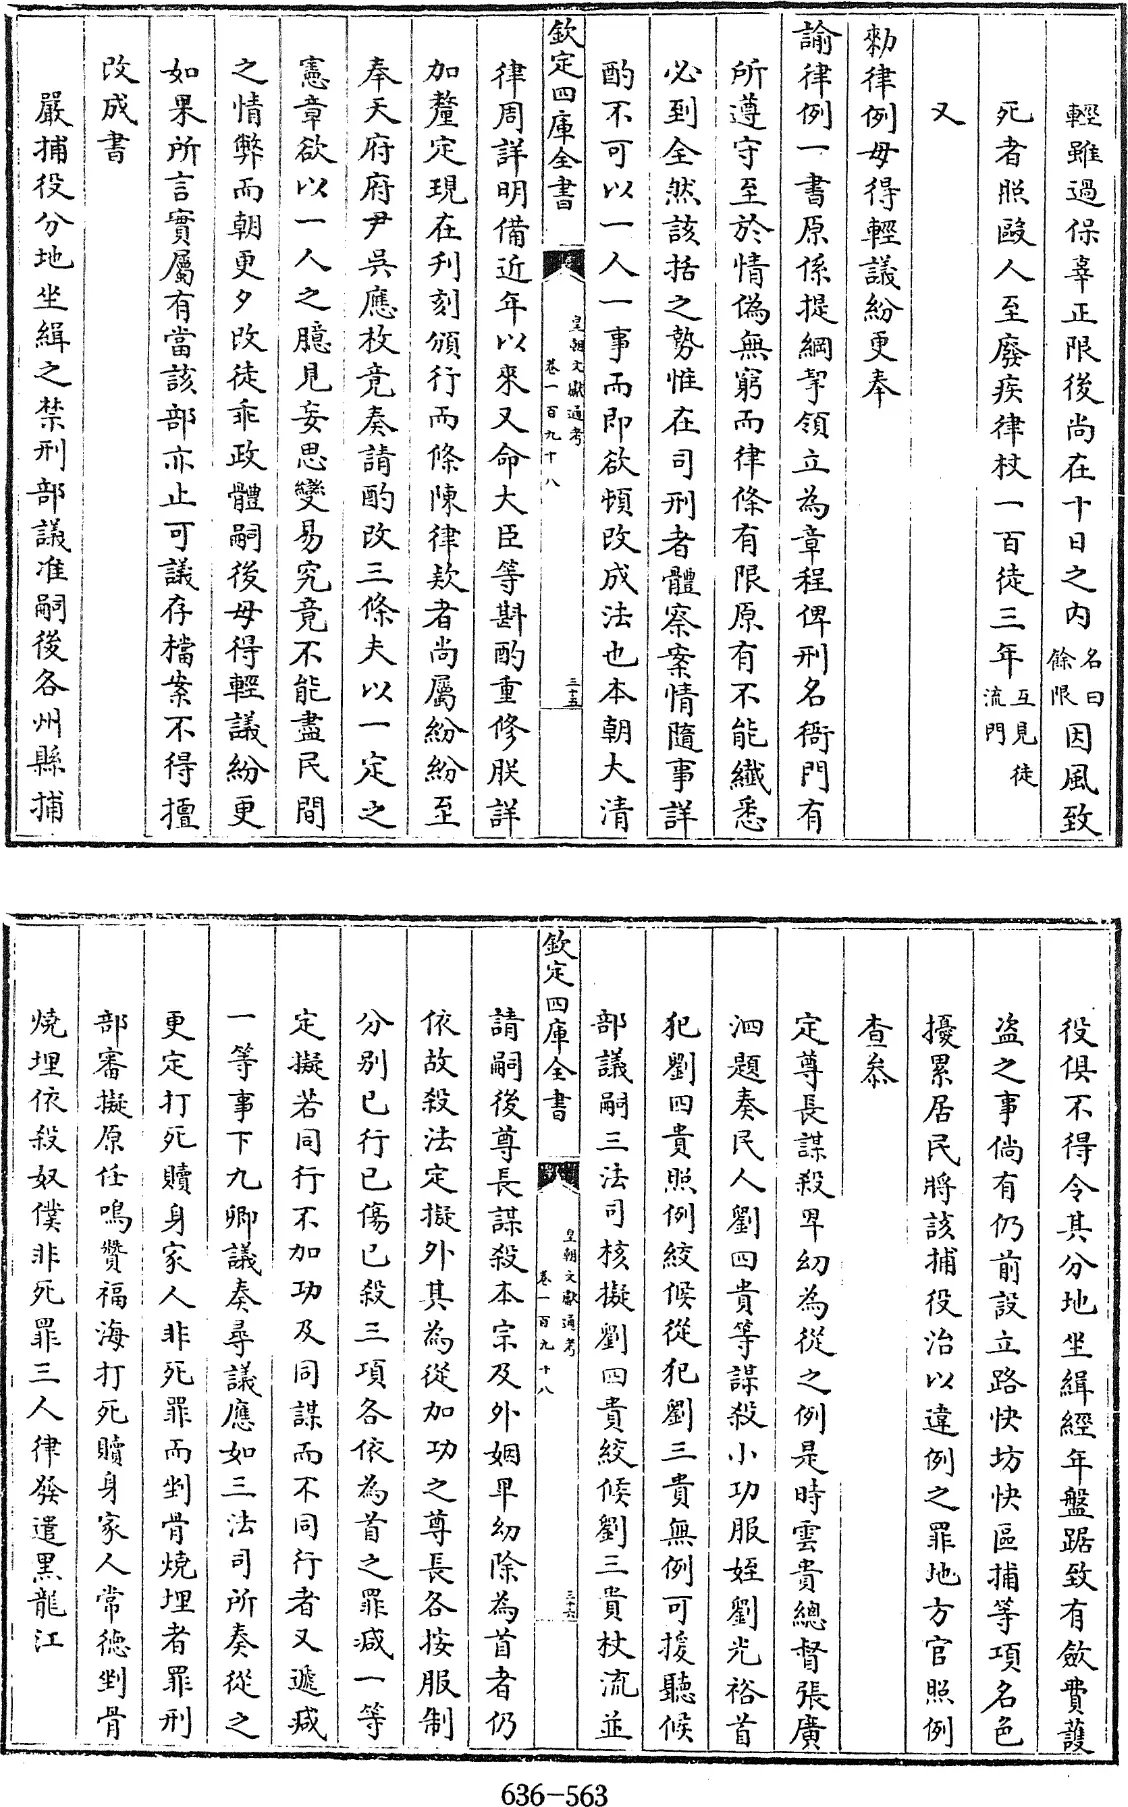 輕雖過保辜正限後尚在十日之内名曰餘限因風致
死者照毆人至廢疾律杖一百徒三年互見徒流門
又
勅律例毋得輕議紛更奉
諭律例一書原係提綱挈領立為章程俾刑名衙門有
所遵守至於情偽無窮而律條有限原有不能纖悉
必到全然該括之勢惟在司刑者體察案情隨事詳
酌不可以一人一事而即欲頓改成法也本朝大清
欽定四庫全書
皇朝文獻通考
卷一百九十八
三十五
律周詳明備近年以來又命大臣等斟酌重修朕詳
加釐定現在刋刻頒行而條陳律款者尚屬紛紛至
奉天府府尹吳應枚竟奏請酌改三條夫以一定之
憲章欲以一人之臆見妄思變易究竟不能盡民間
之情弊而朝更夕改徒乖政體嗣後毋得輕議紛更
如果所言實屬有當該部亦止可議存檔案不得擅
改成書
嚴捕役分地坐緝之禁刑部議准嗣後各州縣捕
役俱不得令其分地坐緝經年盤踞致有斂費護
盗之事倘有仍前設立路快坊快區捕等項名色
擾累居民將該捕役治以違例之罪地方官照例
查叅
定尊長謀殺卑幼為從之例是時雲貴總督張廣
泗題奏民人劉四貴等謀殺小功服姪劉光裕首
犯劉四貴照例絞候從犯劉三貴無例可援聽候
部議嗣三法司核擬劉四貴絞候劉三貴杖流並
欽定四庫全書
皇朝文獻通考
卷一百九十八
三十六
請嗣後尊長謀殺本宗及外姻卑幼除為首者仍
依故殺法定擬外其為從加功之尊長各按服制
分别已行已傷已殺三項各依為首之罪減一等
定擬若同行不加功及同謀而不同行者又遞減
一等事下九卿議奏尋議應如三法司所奏從之
更定打死贖身家人非死罪而剉骨燒埋者罪刑
部審擬原任鳴贊福海打死贖身家人常德剉骨
燒埋依殺奴僕非死罪三人律發遣黑龍江
636-563